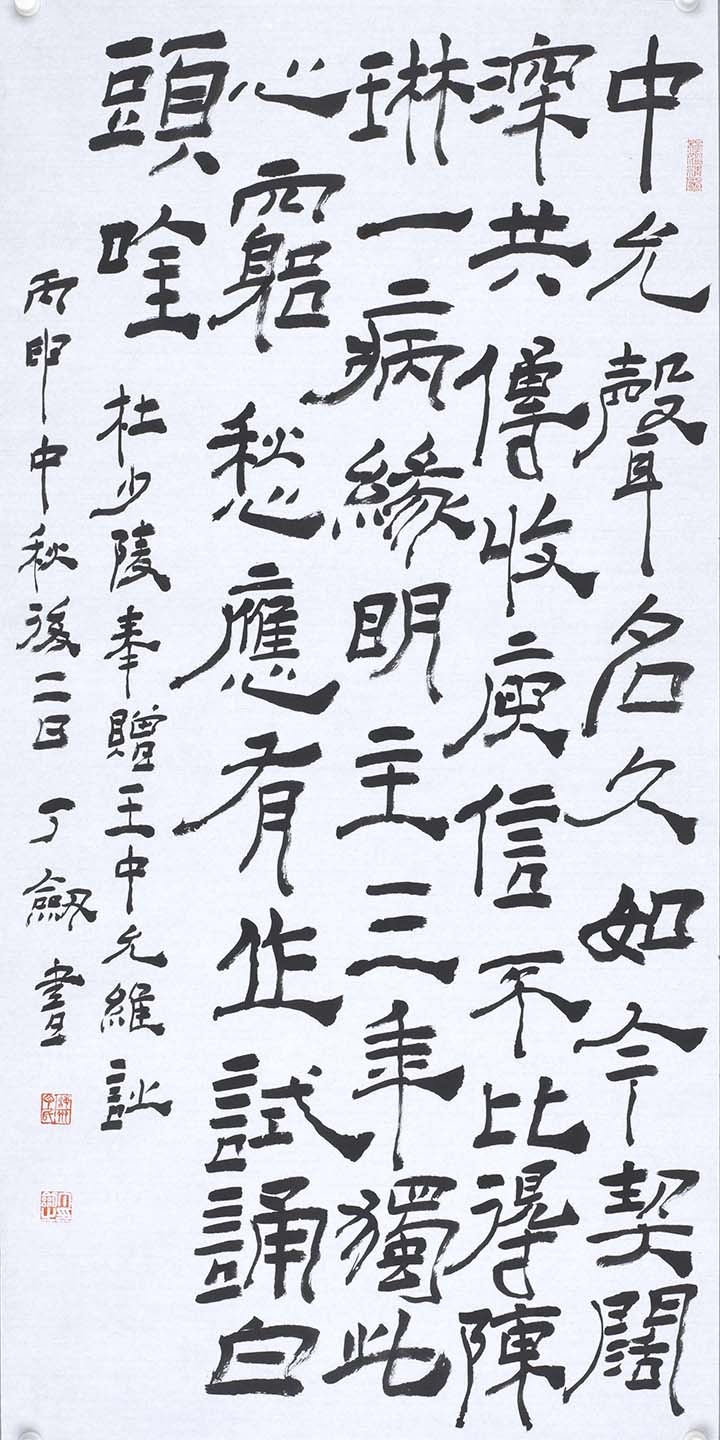 中允聲名久如今契闊
深共傳收庾信不比得陳
琳一病緣明主三年獨此
心竆愁應有作試誦白
頭唫
杜少陵奉贈王中允維詩
丙申中秋後二日丁劔書